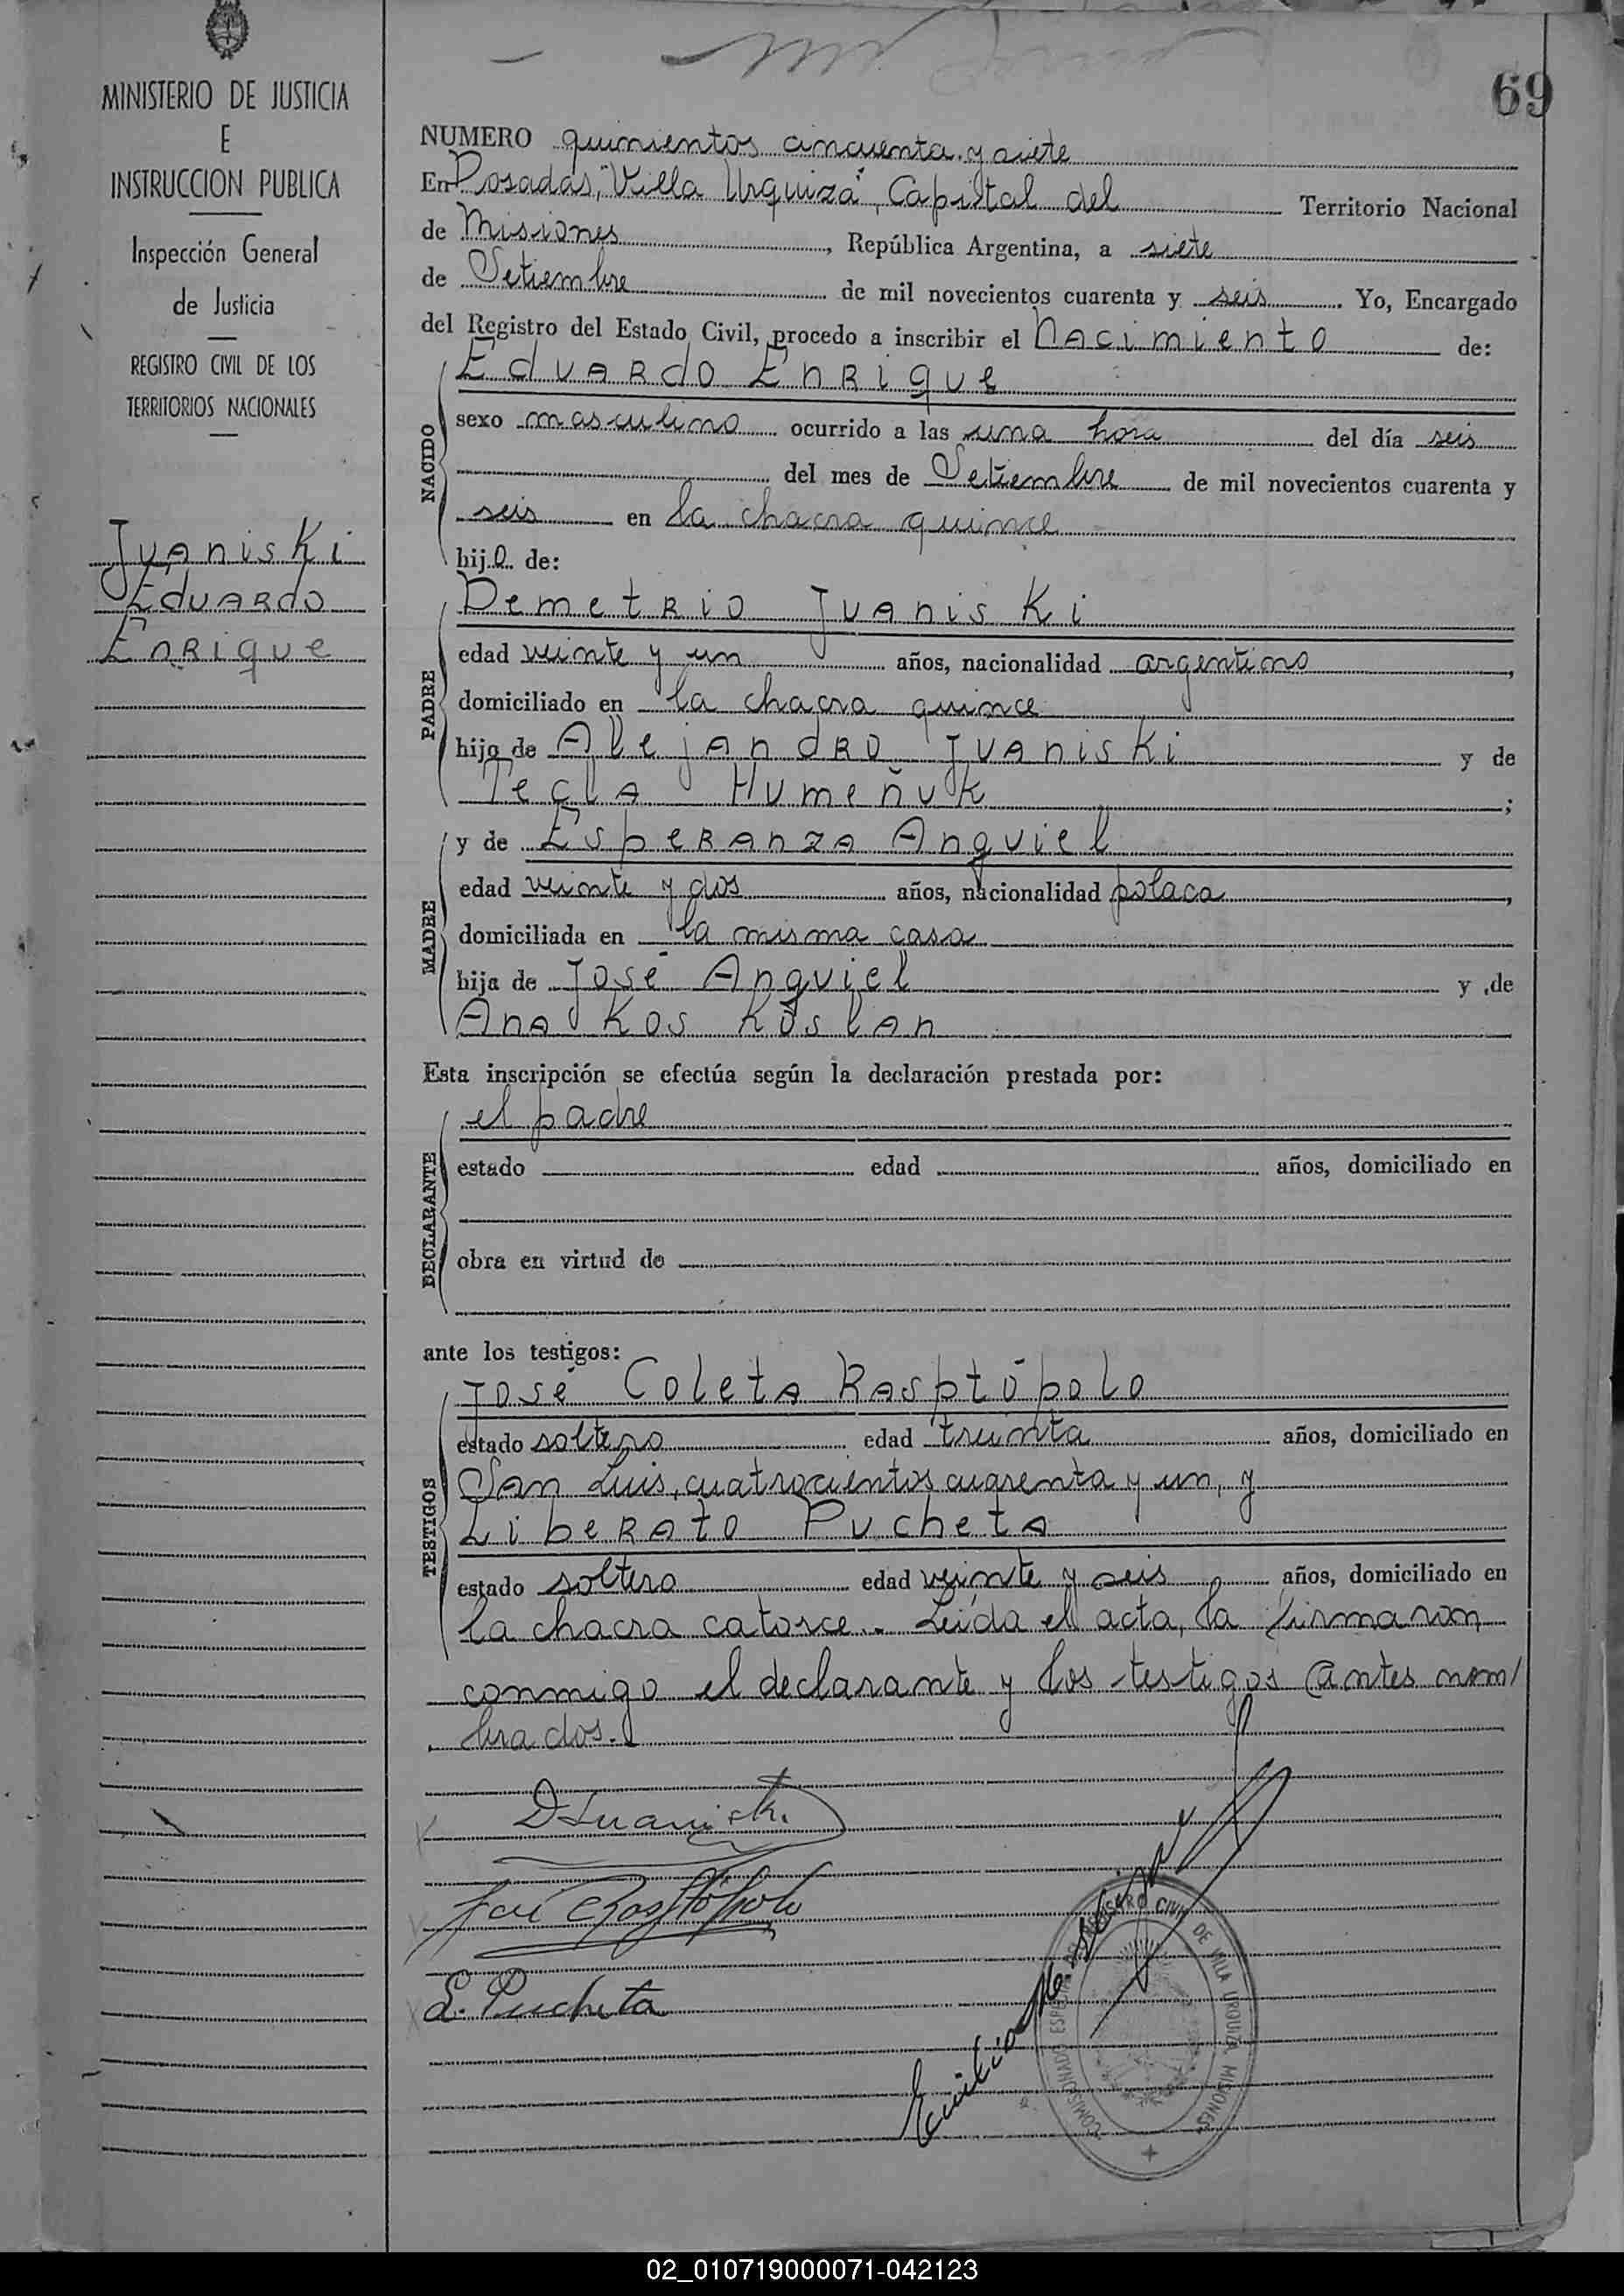 69
MINISTERIO DE JUSTICIA
E
INSTRUCCION PUBLICA
Inspección General
de Justicia
REGISTRO CIVIL DE LOS
TERRITORIOS NACIONALES
Juaniski
Eduardo
Enrique
NUMERO quinientos cincuenta y siete
En Posadas, "Villa Urquiza", Capital del Territorio Nacional
de Misiones, República Argentina, a siete
de Setiembre de mil novecientos cuarenta y seis. Yo, Encargado
del Registro del Estado Civil, procedo a inscribir el Nacimiento de:
NACIDO
Eduardo Enrique
sexo masculino ocurrido a las una hora del día seis
del mes de Setiembre de mil novecientos cuarenta y
seis en la chacra quince
hijo de:
PADRE
Demetrio Juaniski
edad veinte y un años, nacionalidad argentino,
domiciliado en la chacra quince
hijo de Alejandro Juaniski y de
Tecla Humeñuk;
MADRE
y de Esperanza Anguiel
edad veinte y dos años, nacionalidad polaca,
domiciliada en la misma casa
hija de José Anguiel y de
Ana Kos Koslan
Esta inscripción se efectúa según la declaración prestada por:
DECLARANTE
el padre
estado edad años, domiciliado en
obra en virtud de
ante los testigos:
TESTIGOS
José Coleta Rasptópolo
estado soltero edad treinta años, domiciliado en
San Luis, cuatrocientos cuarenta y un, y
Liberato Pucheta
estado soltero edad veinte y seis años, domiciliado en
la chacra catorce.. Leída el acta, la firmaron,
conmigo el declarante y los testigos antes nom/
brados.-
D Juaniski
José Rasptópolo
L. Pucheta
Emilio
COMISIONADO ESPECIAL DEL REGISTRO CIVIL DE VILLA URQUIZA MISIONES
02_010719000071-042123